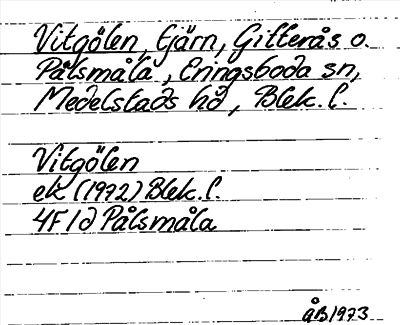 Vitgölen, tjärn, Gitterås o.
Pålsmåla, Eringsboda sn,
Medelstads hd, Blek. l.
Vitgölen
ek (1972) Blek. l.
4F1d Pålsmåla
ÅB 1973